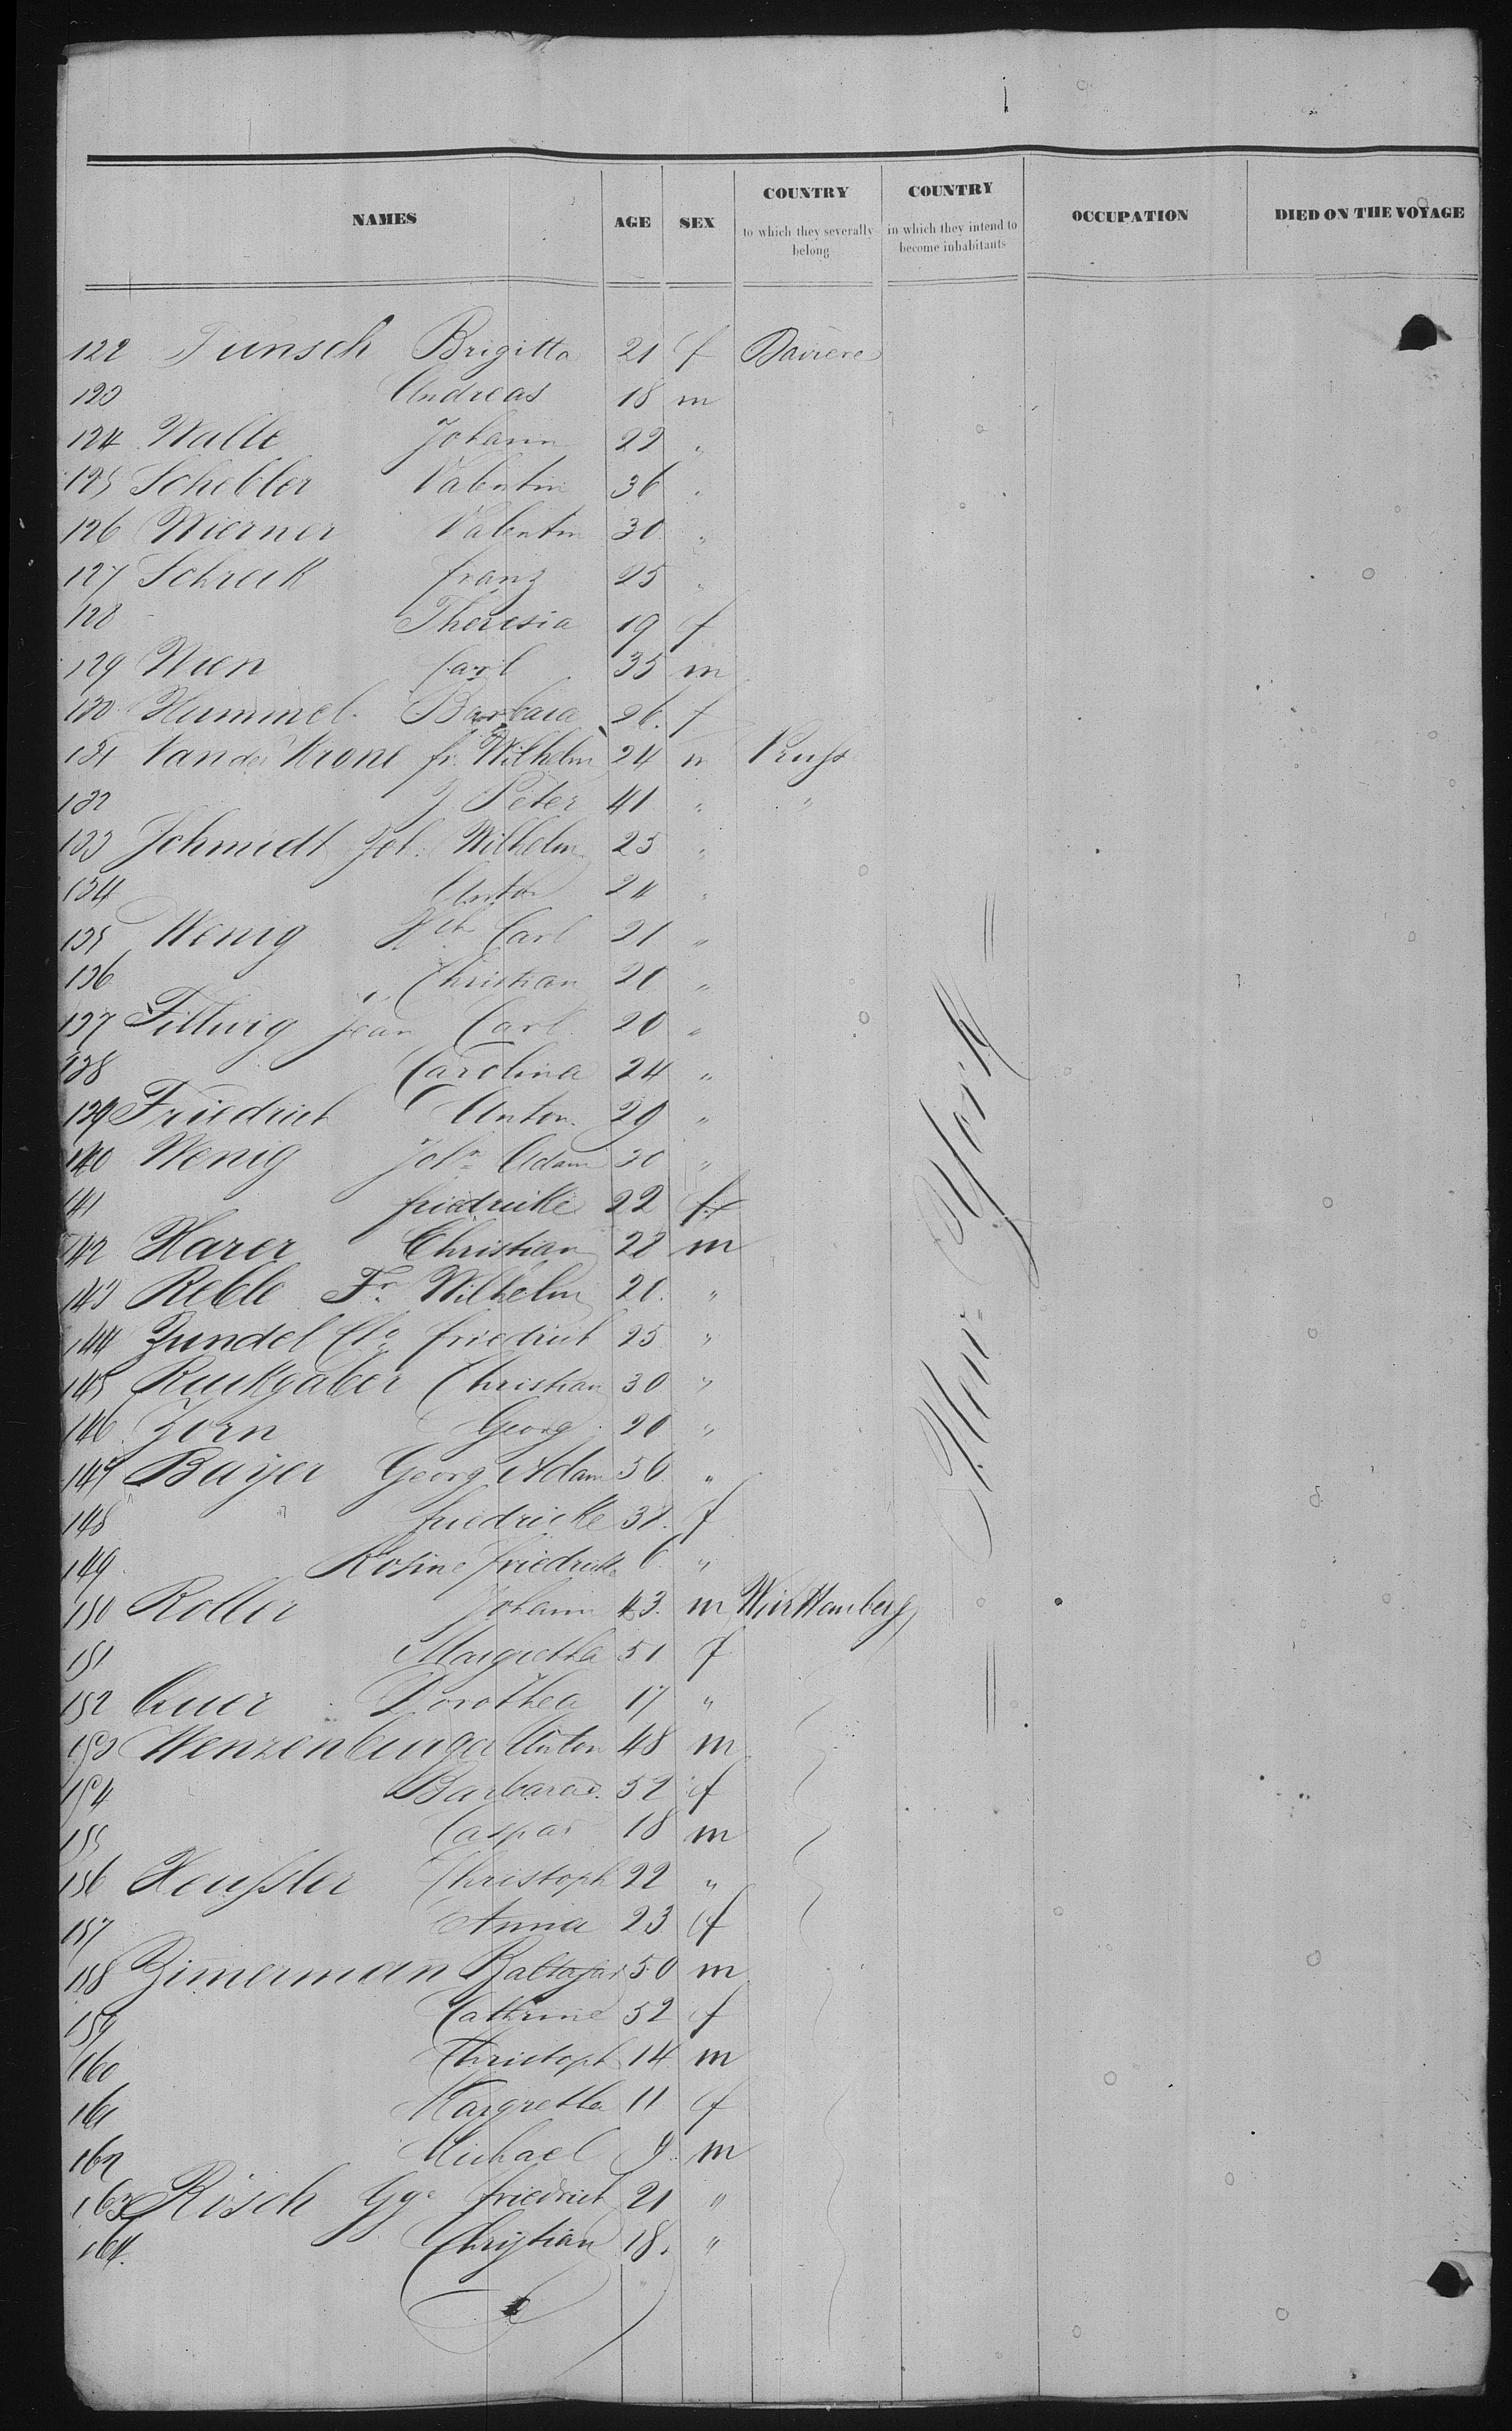 NAMES AGE SEX COUNTRY to which they severally belong COUNTRY in which they intend to become inhabitants OCCUPATION DIED ON THE VOYAGE
122 Tunsch Brigitta 21 f Baviere
123 Andreas 18 m
124 Walle Johann 22 "
125 Schebler Valentin 36 "
126 Wierner Valentin 30 "
127 Schreck franz 25 "
128 Theresia 19 f
129 Nien Carl 35 m
130 Hummel Barbara 26. f
131 Van der Krone fr. Wilhelm 24 m Pruss
132 J Peter 41 " "
133 Schmidt Joh. Wilhelm 25 "
134 Anton 24 "
135 Wenig Hch Carl 21 "
136 Christian 20 "
137 Fillwig Jean Carl 20 "
138 Carolina 24 "
139 Friedrich Anton 29 "
140 Wenig John Adam 30 "
141 friedricke 22 f
142 Harer Christian 28 m
143 Reble Fr. Wilhelm 21. "
144 Zundel Cho friedrich 25 "
145 Ruckgaber Christian 30 "
146 Zorn Georg 20 "
147 Bayer Georg Adam 50 "
148 friedricke 31. f
149 Rosine friedricke 6 "
150 Roller Johann 43. m Wurttemberg
151 Margretha 51 f
152 Auer Dorothea 17 "
153 Wenzenburger Anton 48 m
154 Barbara 52 f
155 Caspar 18 m
156 Heussler Christoph 22 "
157 Anna 23 f
158 Zimerman Baltasar 50 m
159 Cathrine 52 f
160 Christoph 14 m
161 Margretha 11 f
162 Michael 9 m
163 Risch Gge friedrich 21 "
164. Christian 18. "
New-York